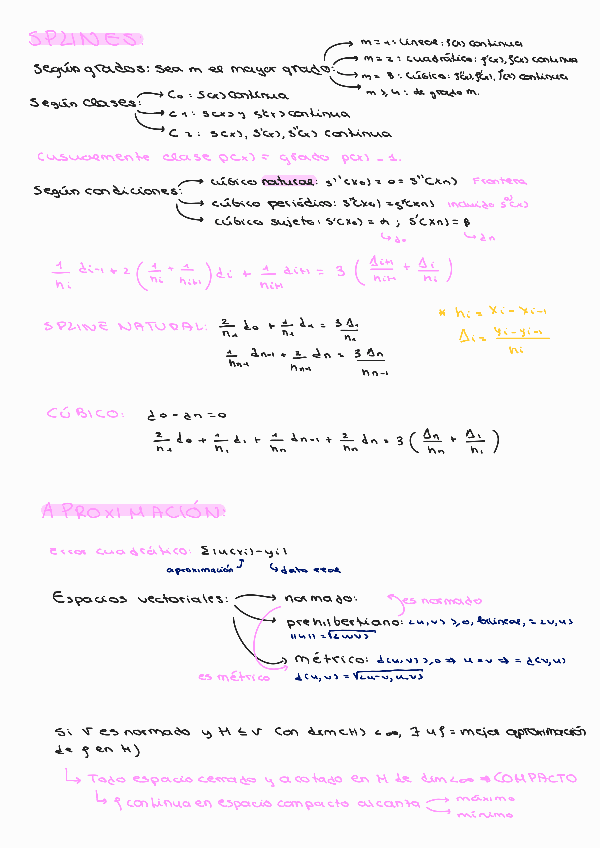 SPLINES
m = 1: Lineal: f(x) continua
m = 2: Cuadrático: f'(x), f(x) continua
Según grados: Sea m el mayor grado:
m = 3: Cúbico: f''(x), f'(x), f(x) continua
m ≥ 4: de grado m.
Según Clases: C0: S(x) continua
C1: S(x) y S'(x) continua
C2: S(x), S'(x), S''(x) continua
Cusualmente clase p(x) = grado p(x) - 1.
Según condiciones: cúbico natural: S''(x0) = 0 = S''(xn) Frontera
cúbico periódico: S'(x0) = S'(xn) incluido S''(x)
cúbico sujeto: S'(x0) = α ; S'(xn) = β
↳ d0 ↳ dn
1/hi di-1 + 2 (1/hi + 1/hi+1) di + 1/hi+1 di+1 = 3 (Δi+1/hi+1 + Δi/hi)
* hi = xi - xi-1
SPLINE NATURAL: 2/h1 d0 + 1/h1 d1 = 3Δ1/h1
Δi = yi - yi-1/hi
1/hn-1 dn-1 + 2/hn-1 dn = 3Δn/hn-1
CÚBICO: d0 - dn = 0
2/h1 d0 + 1/h1 d1 + 1/hn dn-1 + 2/hn dn = 3 (Δn/hn + Δ1/h1)
APROXIMACIÓN:
error cuadrático: Σ|u(xi)-yi|
aproximación ↳ dato real
Espacios vectoriales: normado: es normado
prehilbertiano: <u,v> ≥ 0, bilineal, = <v,u>
||u|| = √<u,v>
métrico: d(u,v) ≥ 0 ⇒ u = v ⇒ = d(v,u)
es métrico d(u,v) = √<u-v, u-v>
Si V es normado y H ≤ V con dim(H) < ∞, ∃ uf = mejor aproximación
de f en H)
↳ Todo espacio cerrado y acotado en H de dim < ∞ ⇒ COMPACTO
↳ f continua en espacio compacto alcanza máximo
mínimo